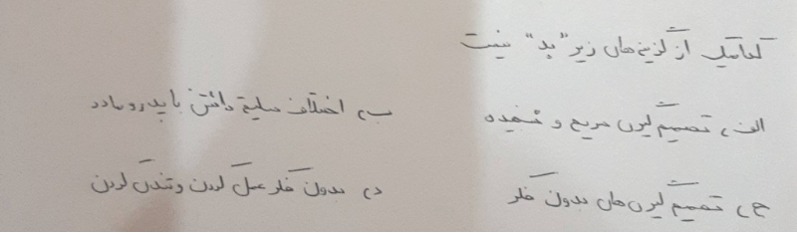 کدامیک از گزینه های زیر "بد" نیست
الف) تصمیم گیری سریع و نسنجیده
ب) اختلاف سلیقه داشتن با پدر و مادر
ج) تصمیم گیری های بدون فکر
د) بدون فکر عمل کردن و تندی کردن